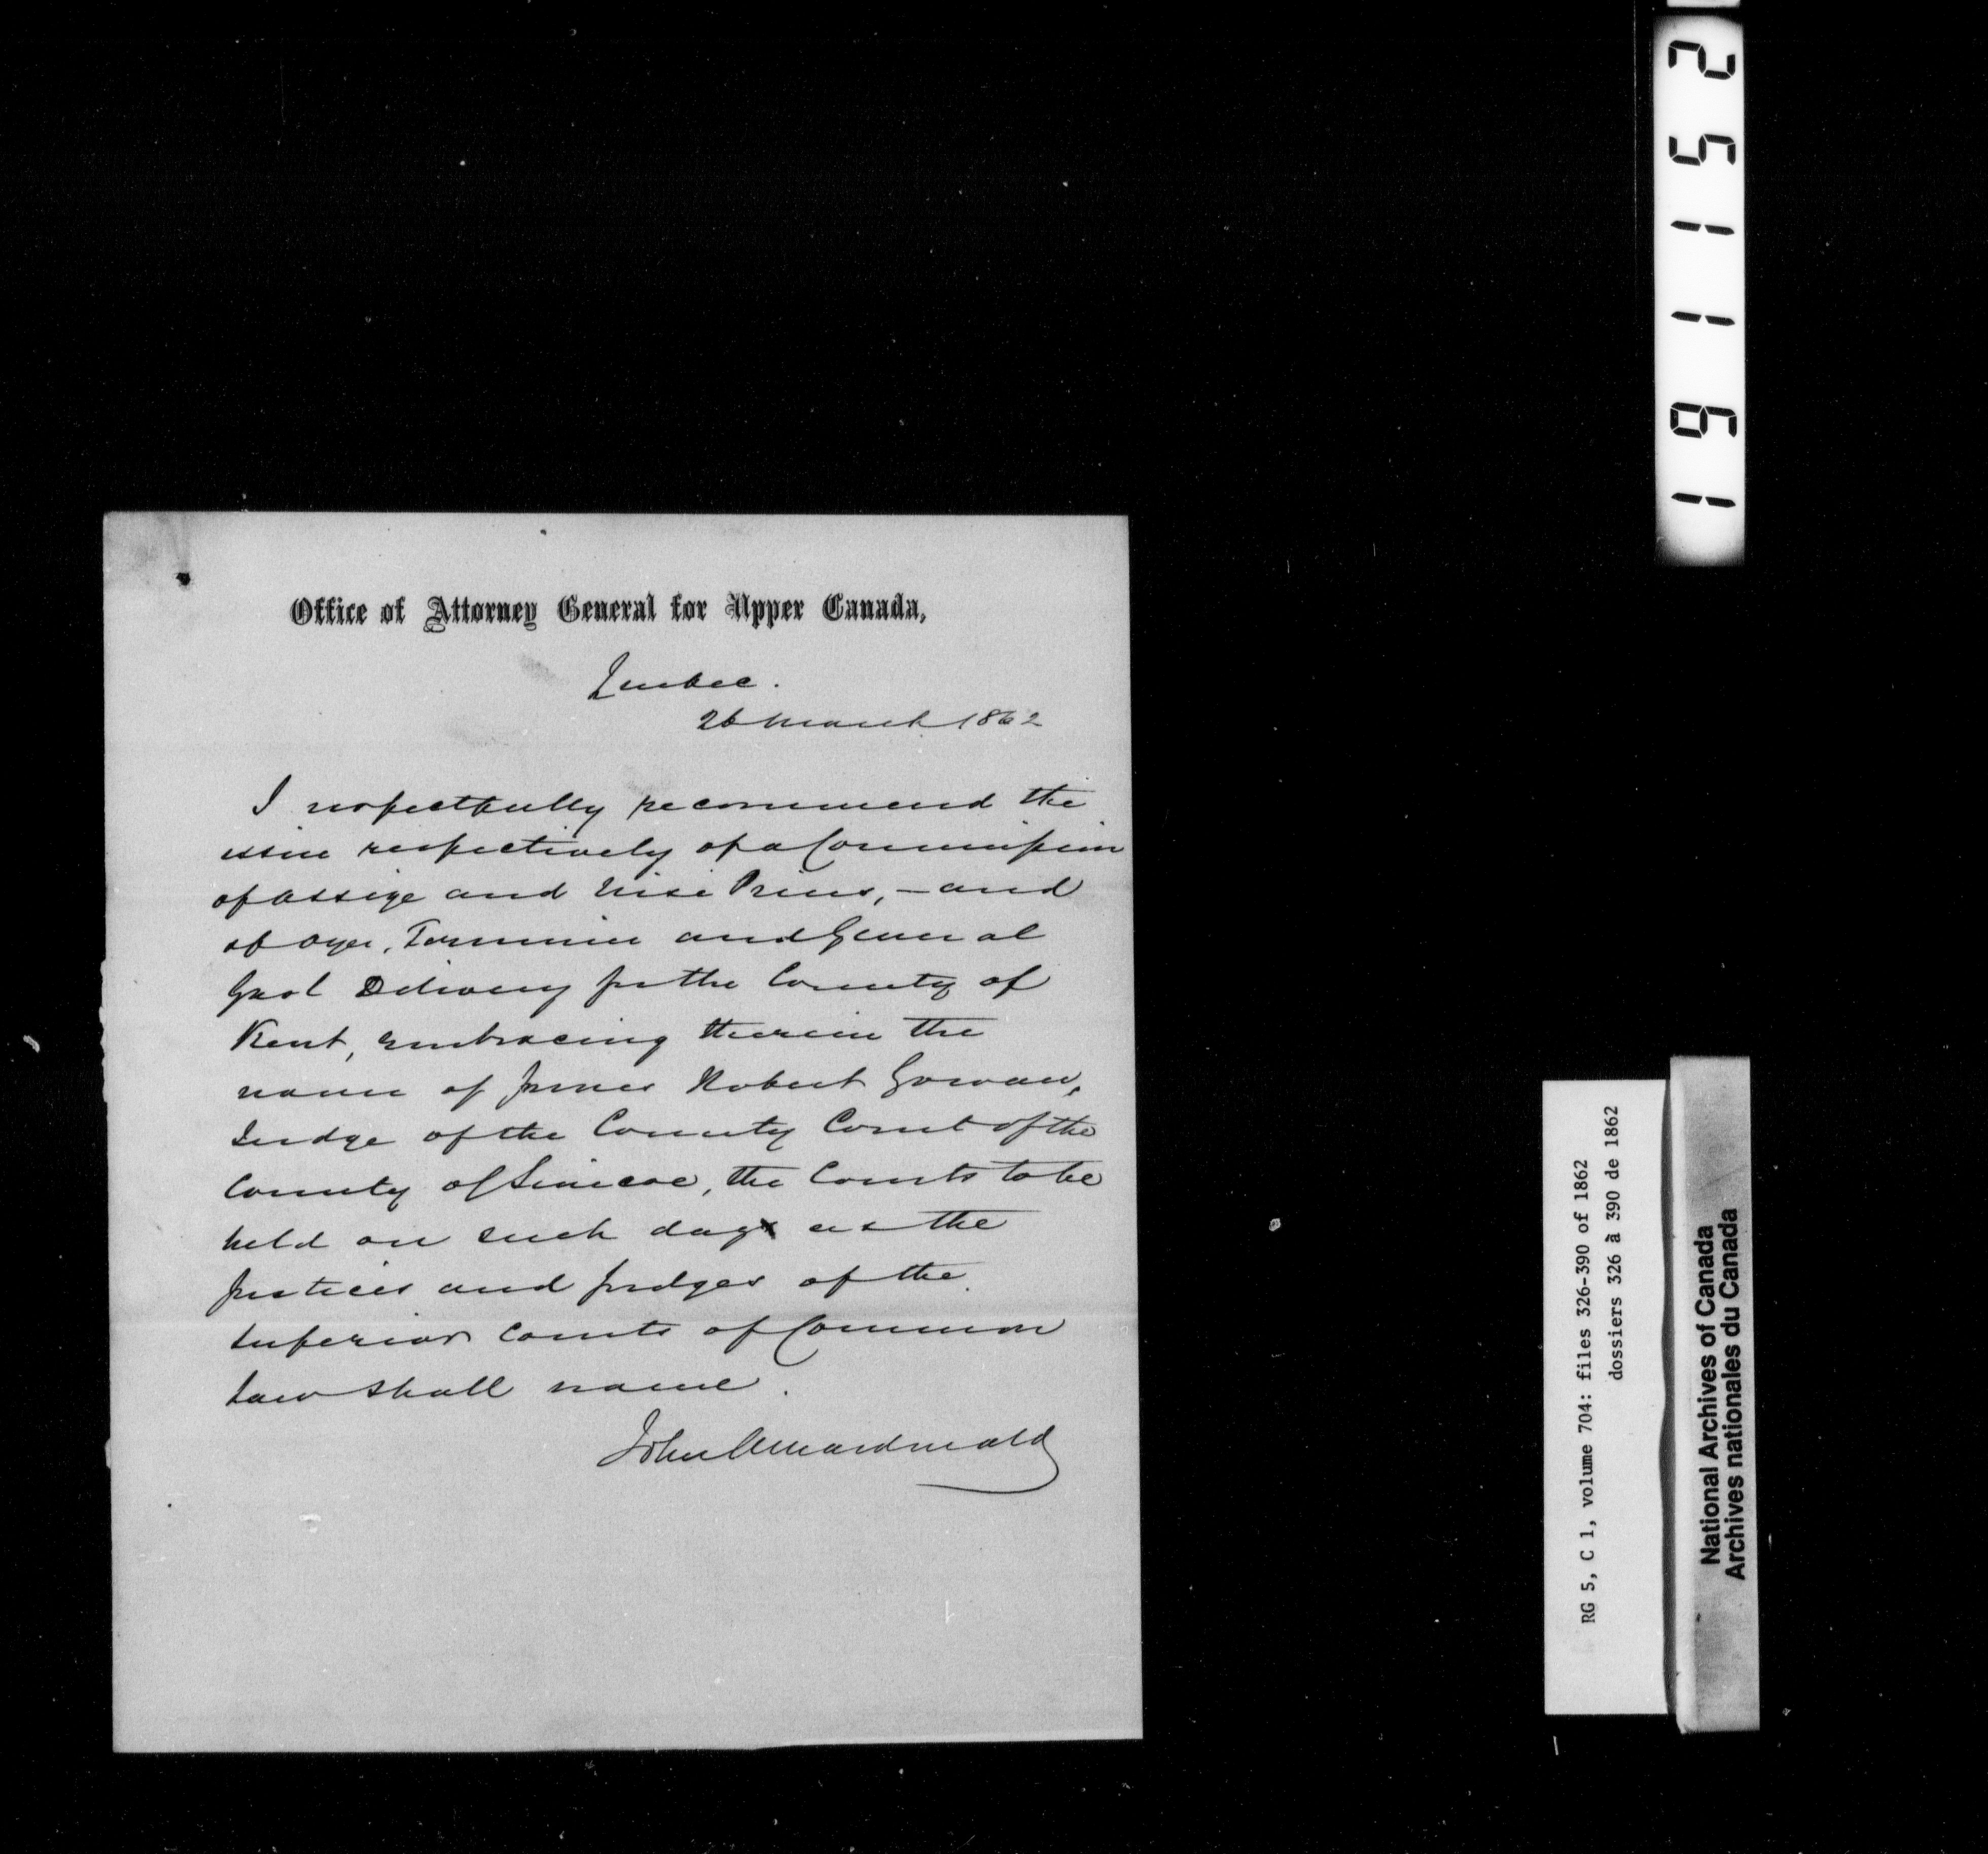 Office of Attorney General for Upper Canada,
Quebec.
26 March 1862
I respectfully recommend the
issue respectively of a Commission
of Assize and Nisi Prius, – and
of Oyer, Terminer and General
Gaol Delivery for the County of
Kent, embracing therein the
name of James Robert Gowan,
Judge of the County Court of the
County of Simcoe, the Courts to be
held on such days as the
Justices and Judges of the
Superior Courts of Common
Law shall name.
John A Macdonald
251161
RG 5, C 1, volume 704: files 326-390 of 1862
dossiers 326 à 390 de 1862
National Archives of Canada
Archives nationales du Canada